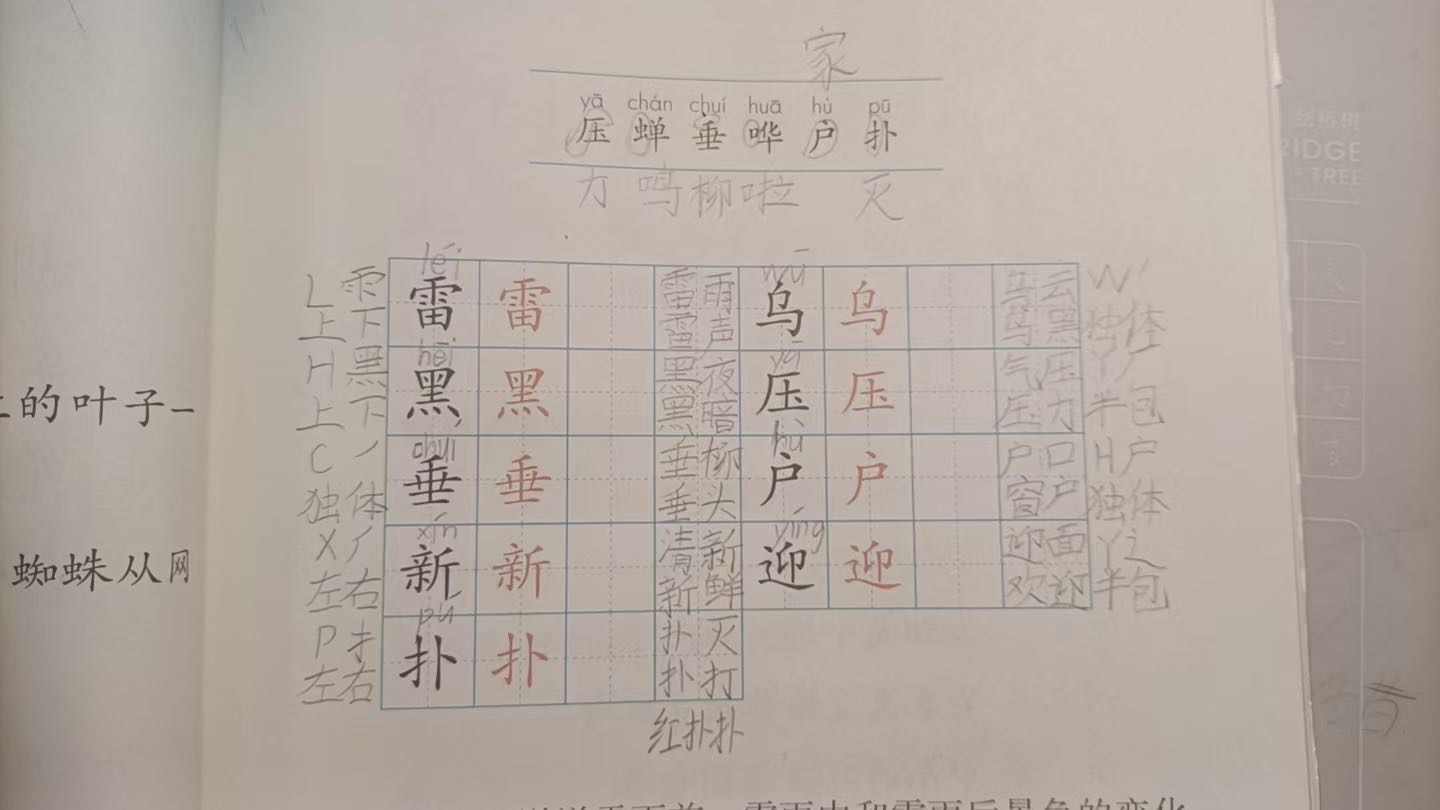 家
yā chán chuí huā hù pū
压 蝉 垂 哗 户 扑
力 鸣 柳 啦 灭
léi wū
L 雷 雷 雷 雨 乌 乌 乌 云 W
上 下 雷 声 乌 黑 独体
hēi yā
H 黑 黑 黑 黑 夜 压 压 气 压 Y 厂
上 下 黑 暗 压 力 半包
chuí hù
C 丿 垂 垂 垂 柳 户 户 户 口 H 户
独体 垂 头 窗 户 独体
xīn yíng
X 新 新 清 新 迎 迎 迎 面 Y 辶
左右 新 鲜 欢 迎 半包
pū
P 扌 扑 扑 扑 灭
左右 扑 打
红扑扑
的叶子
蜘蛛从网
剑桥树
RIDGE
TREE